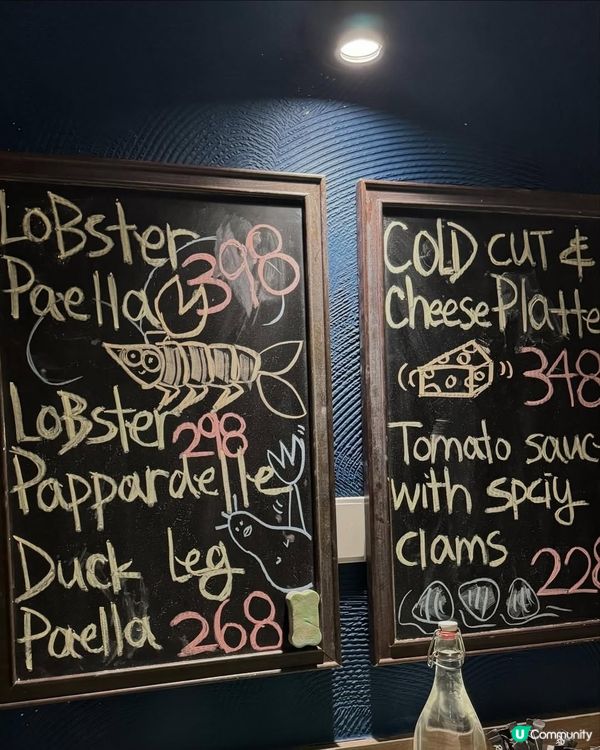 LoBster
Paella 398
LoBster 298
Pappardelle
Duck Leg
Paella 268
COLD CUT &
cheese Platte
348
Tomato sauc
with spciy
clams
228
U Community